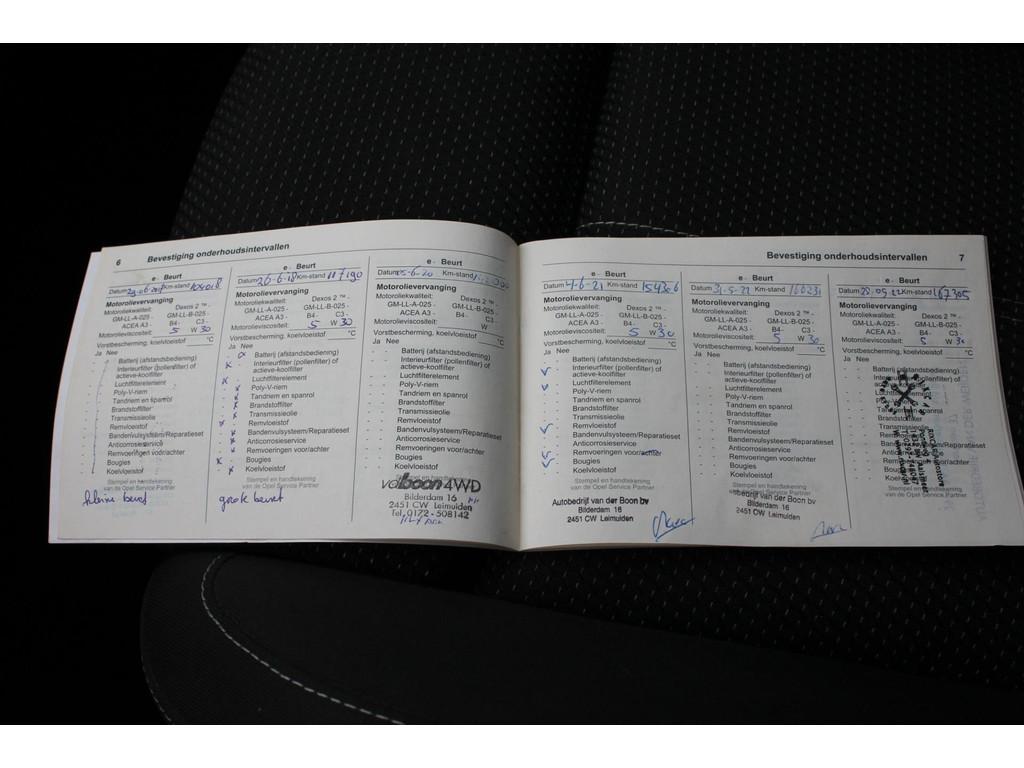 6 Bevestiging onderhoudsintervallen
e - Beurt
Datum Km-stand 104018
Motorolievervanging
Motoroliekwaliteit: Dexos 2 ™ -
GM-LL-A-025 - GM-LL-B-025 -
ACEA A3 - B4- C3 -
Motorolieviscositeit: 5 W 30
Vorstbescherming, koelvloeistof °C
Ja Nee
Batterij (afstandsbediening)
Interieurfilter (pollenfilter) of
actieve-koolfilter
Luchtfilterelement
Poly-V-riem
Tandriem en spanrol
Brandstoffilter
Transmissieolie
Remvloeistof
Bandenvulsysteem/Reparatieset
Anticorrosieservice
Remvoeringen voor/achter
Bougies
Koelvloeistof
Stempel en handtekening
van de Opel Service Partner
kleine beurt
e - Beurt
Datum 26-6-18 Km-stand 117190
Motorolievervanging
Motoroliekwaliteit: Dexos 2 ™ -
GM-LL-A-025 - GM-LL-B-025 -
ACEA A3 - B4- C3 -
Motorolieviscositeit: 5 W 30
Vorstbescherming, koelvloeistof °C
Ja Nee
Batterij (afstandsbediening)
Interieurfilter (pollenfilter) of
actieve-koolfilter
Luchtfilterelement
Poly-V-riem
Tandriem en spanrol
Brandstoffilter
Transmissieolie
Remvloeistof
Bandenvulsysteem/Reparatieset
Anticorrosieservice
Remvoeringen voor/achter
Bougies
Koelvloeistof
Stempel en handtekening
van de Opel Service Partner
grote beurt
e - Beurt
Datum 05-6-20 Km-stand
Motorolievervanging
Motoroliekwaliteit: Dexos 2 ™ -
GM-LL-A-025 - GM-LL-B-025 -
ACEA A3 - B4- C3 -
Motorolieviscositeit: W
Vorstbescherming, koelvloeistof °C
Ja Nee
Batterij (afstandsbediening)
Interieurfilter (pollenfilter) of
actieve-koolfilter
Luchtfilterelement
Poly-V-riem
Tandriem en spanrol
Brandstoffilter
Transmissieolie
Remvloeistof
Bandenvulsysteem/Reparatieset
Anticorrosieservice
Remvoeringen voor/achter
Bougies
Koelvloeistof
Stempel en handtekening
van de Opel Service Partner
vdboon 4WD
Bilderdam 16
2451 CW Leimuiden
Tel. 0172 - 508142
Bevestiging onderhoudsintervallen 7
e - Beurt
Datum 4-6-21 Km-stand 154306
Motorolievervanging
Motoroliekwaliteit: Dexos 2 ™ -
GM-LL-A-025 - GM-LL-B-025 -
ACEA A3 - B4- C3 -
Motorolieviscositeit: 5 W 30
Vorstbescherming, koelvloeistof °C
Ja Nee
Batterij (afstandsbediening)
Interieurfilter (pollenfilter) of
actieve-koolfilter
Luchtfilterelement
Poly-V-riem
Tandriem en spanrol
Brandstoffilter
Transmissieolie
Remvloeistof
Bandenvulsysteem/Reparatieset
Anticorrosieservice
Remvoeringen voor/achter
Bougies
Koelvloeistof
Stempel en handtekening
van de Opel Service Partner
Autobedrijf van der Boon bv
Bilderdam 16
2451 CW Leimuiden
e - Beurt
Datum 31-5-22 Km-stand 166231
Motorolievervanging
Motoroliekwaliteit: Dexos 2 ™ -
GM-LL-A-025 - GM-LL-B-025 -
ACEA A3 - B4- C3 -
Motorolieviscositeit: 5 W 30
Vorstbescherming, koelvloeistof °C
Ja Nee
Batterij (afstandsbediening)
Interieurfilter (pollenfilter) of
actieve-koolfilter
Luchtfilterelement
Poly-V-riem
Tandriem en spanrol
Brandstoffilter
Transmissieolie
Remvloeistof
Bandenvulsysteem/Reparatieset
Anticorrosieservice
Remvoeringen voor/achter
Bougies
Koelvloeistof
Stempel en handtekening
van de Opel Service Partner
Autobedrijf van der Boon bv
Bilderdam 16
2451 CW Leimuiden
e - Beurt
Datum 28-09-22 Km-stand 167305
Motorolievervanging
Motoroliekwaliteit: Dexos 2 ™ -
GM-LL-A-025 - GM-LL-B-025 -
ACEA A3 - B4- C3 -
Motorolieviscositeit: 5 W 30
Vorstbescherming, koelvloeistof °C
Ja Nee
Batterij (afstandsbediening)
Interieurfilter (pollenfilter) of
Luchtfilterelement
Poly-V-riem
Tandriem en spanrol
Brandstoffilter
Transmissieolie
Bandenvulsysteem/Reparatieset
Remvoeringen voor/achter
Bougies
Koelvloeistof
Stempel en handtekening
van de Opel Service Partner